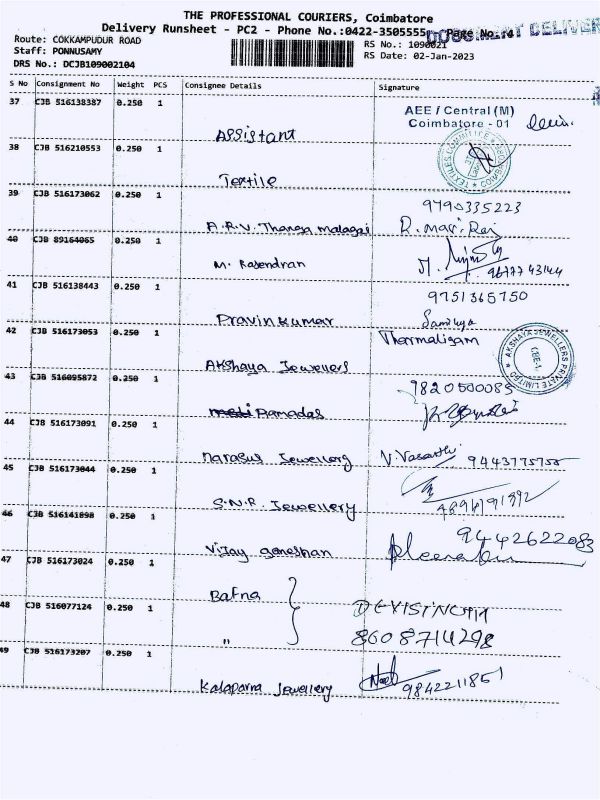 THE PROFESSIONAL COURIERS, Coimbatore
Delivery Runsheet - PC2 - Phone No.:0422-3505555 Page No. 4
DOCUMENT DELIVER
Route: COKKAMPUDUR ROAD
RS No.: 1090021
Staff: PONNUSAMY
RS Date: 02-Jan-2023
DRS No.: DCJB109002104
S No Consignment No Weight PCS Consignee Details Signature
37 CJB 516138387 0.250 1 Assistant
AEE / Central (M)
Coimbatore - 01
38 CJB 516210553 0.250 1 Textile
TEXTILES COMMITTEE
39 CJB 516173062 0.250 1 A.R.V. Thanga malagai
9790335223
R. Mari Raj
40 CJB 89164065 0.250 1 M. Rasendran
9677743144
41 CJB 516138443 0.250 1 Pravin Kumar
9751365750
Sandhya
42 CJB 516173053 0.250 1 Akshaya Jewellers
Tharmaligam
AKSHAYA JEWELLERS PRIVATE LIMITED
CBE-1.
43 CJB 516095872 0.250 1 Ramadas
9820500085
44 CJB 516173091 0.250 1 Narasus Jewellery
V. Vasanthi 9443775755
45 CJB 516173044 0.250 1 S.N.R. Jewellery
46 CJB 516141098 0.250 1 Vijay ganeshan
9442622083
47 CJB 516173024 0.250 1 Bafna
48 CJB 516077124 0.250 1 "
DEVISINGH
8608714298
49 CJB 516173207 0.250 1 Kalaparna Jewellery
9842211851